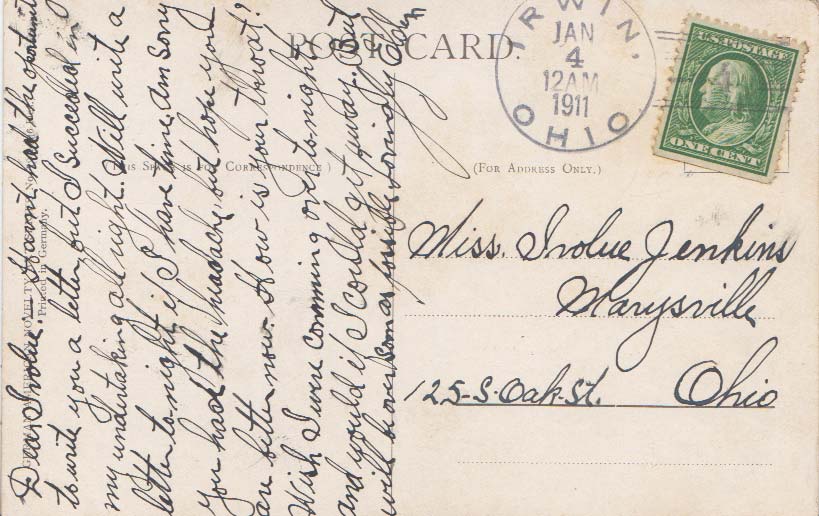 POST CARD.
IRWIN,
JAN
4
12AM
1911
OHIO
U.S. POSTAGE
ONE CENT
(THIS SPACE IS FOR CORRESPONDENCE)
(FOR ADDRESS ONLY.)
Printed in Germany.
Dear Irolue:- Havnt had the oportunity
to write you a letter, but I succeeded in
my undertaking all right. Will write a
letter to-night if I have time. Am sorry
you had the headache, but hope you
are better now. How is your throat?
Wish I were comming over to-night
and would if I could get away. But
will be over soon as possible.
Miss. Irolue Jenkins
Marysville
125-S-Oak-St. Ohio